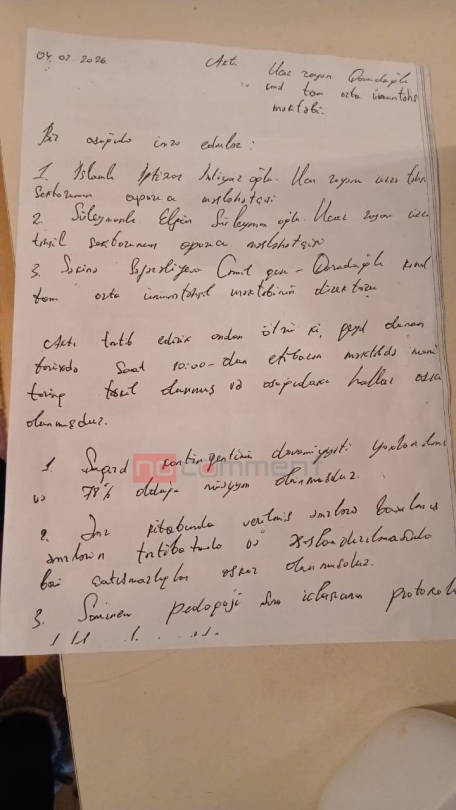 04.02.2026
Akt
Ucar rayon Qaradağlı
kənd tam orta ümumtəhsil
məktəbi.
Biz aşağıda imza edənlər:
1. İslamlı İftixar İxtiyar oğlu. Ucar rayonu üzrə təhsil
sektorunun aparıcı məsləhətçisi
2. Süleymanlı Elşən Süleyman oğlu. Ucar rayon üzrə
təhsil sektorunun aparıcı məsləhətçisi
3. Səkinə Səfərəliyeva Cəmil qızı - Qaradağlı kənd
tam orta ümumtəhsil məktəbinin direktoru
Aktı tərtib edirik ondan ötrü ki, qeyd olunan
tarixdə saat 10:00-dan etibarən məktəbdə moni
torinq təşkil olunmuş və aşağıdakı hallar aşkar
olunmuşdur.
1. Şagird kontingentinin davamiyyəti yoxlanılmış
və 78% olduğu müəyyən olunmuşdur.
no comment
2. Əmr kitabında verilmiş əmrlərə baxılmış
əmrlərin tərtibatında və rəsmiləşdirilməsində
bəzi çatışmazlıqlar aşkar olunmuşdur.
3. pedaqoji şura iclasının protokol